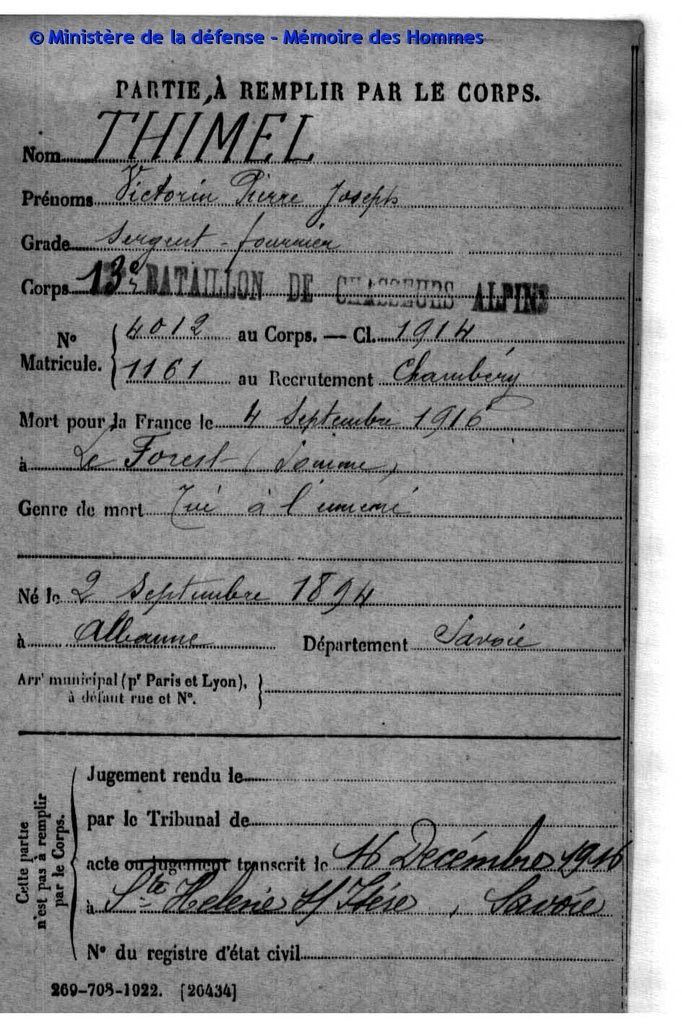 © Ministère de la défense - Mémoire des Hommes
PARTIE À REMPLIR PAR LE CORPS.
Nom THIMEL
Prénoms Victorin Pierre Joseph
Grade Sergent-fourrier
Corps 13e BATAILLON DE CHASSEURS ALPINS
N° Matricule. { 4012 au Corps. — Cl. 1914
1161 au Recrutement Chambéry
Mort pour la France le 4 Septembre 1916
à Le Forest (Somme)
Genre de mort Tué à l'ennemi
Né le 2 Septembre 1894
à Albanne Département Savoie
Arrt municipal (pr Paris et Lyon), }
à défaut rue et N°.
Cette partie n'est pas à remplir par le Corps.
Jugement rendu le
par le Tribunal de
acte ou jugement transcrit le 16 Décembre 1916
à Ste Helène s/ Isère, Savoie
N° du registre d'état civil
269-708-1922. [26434]